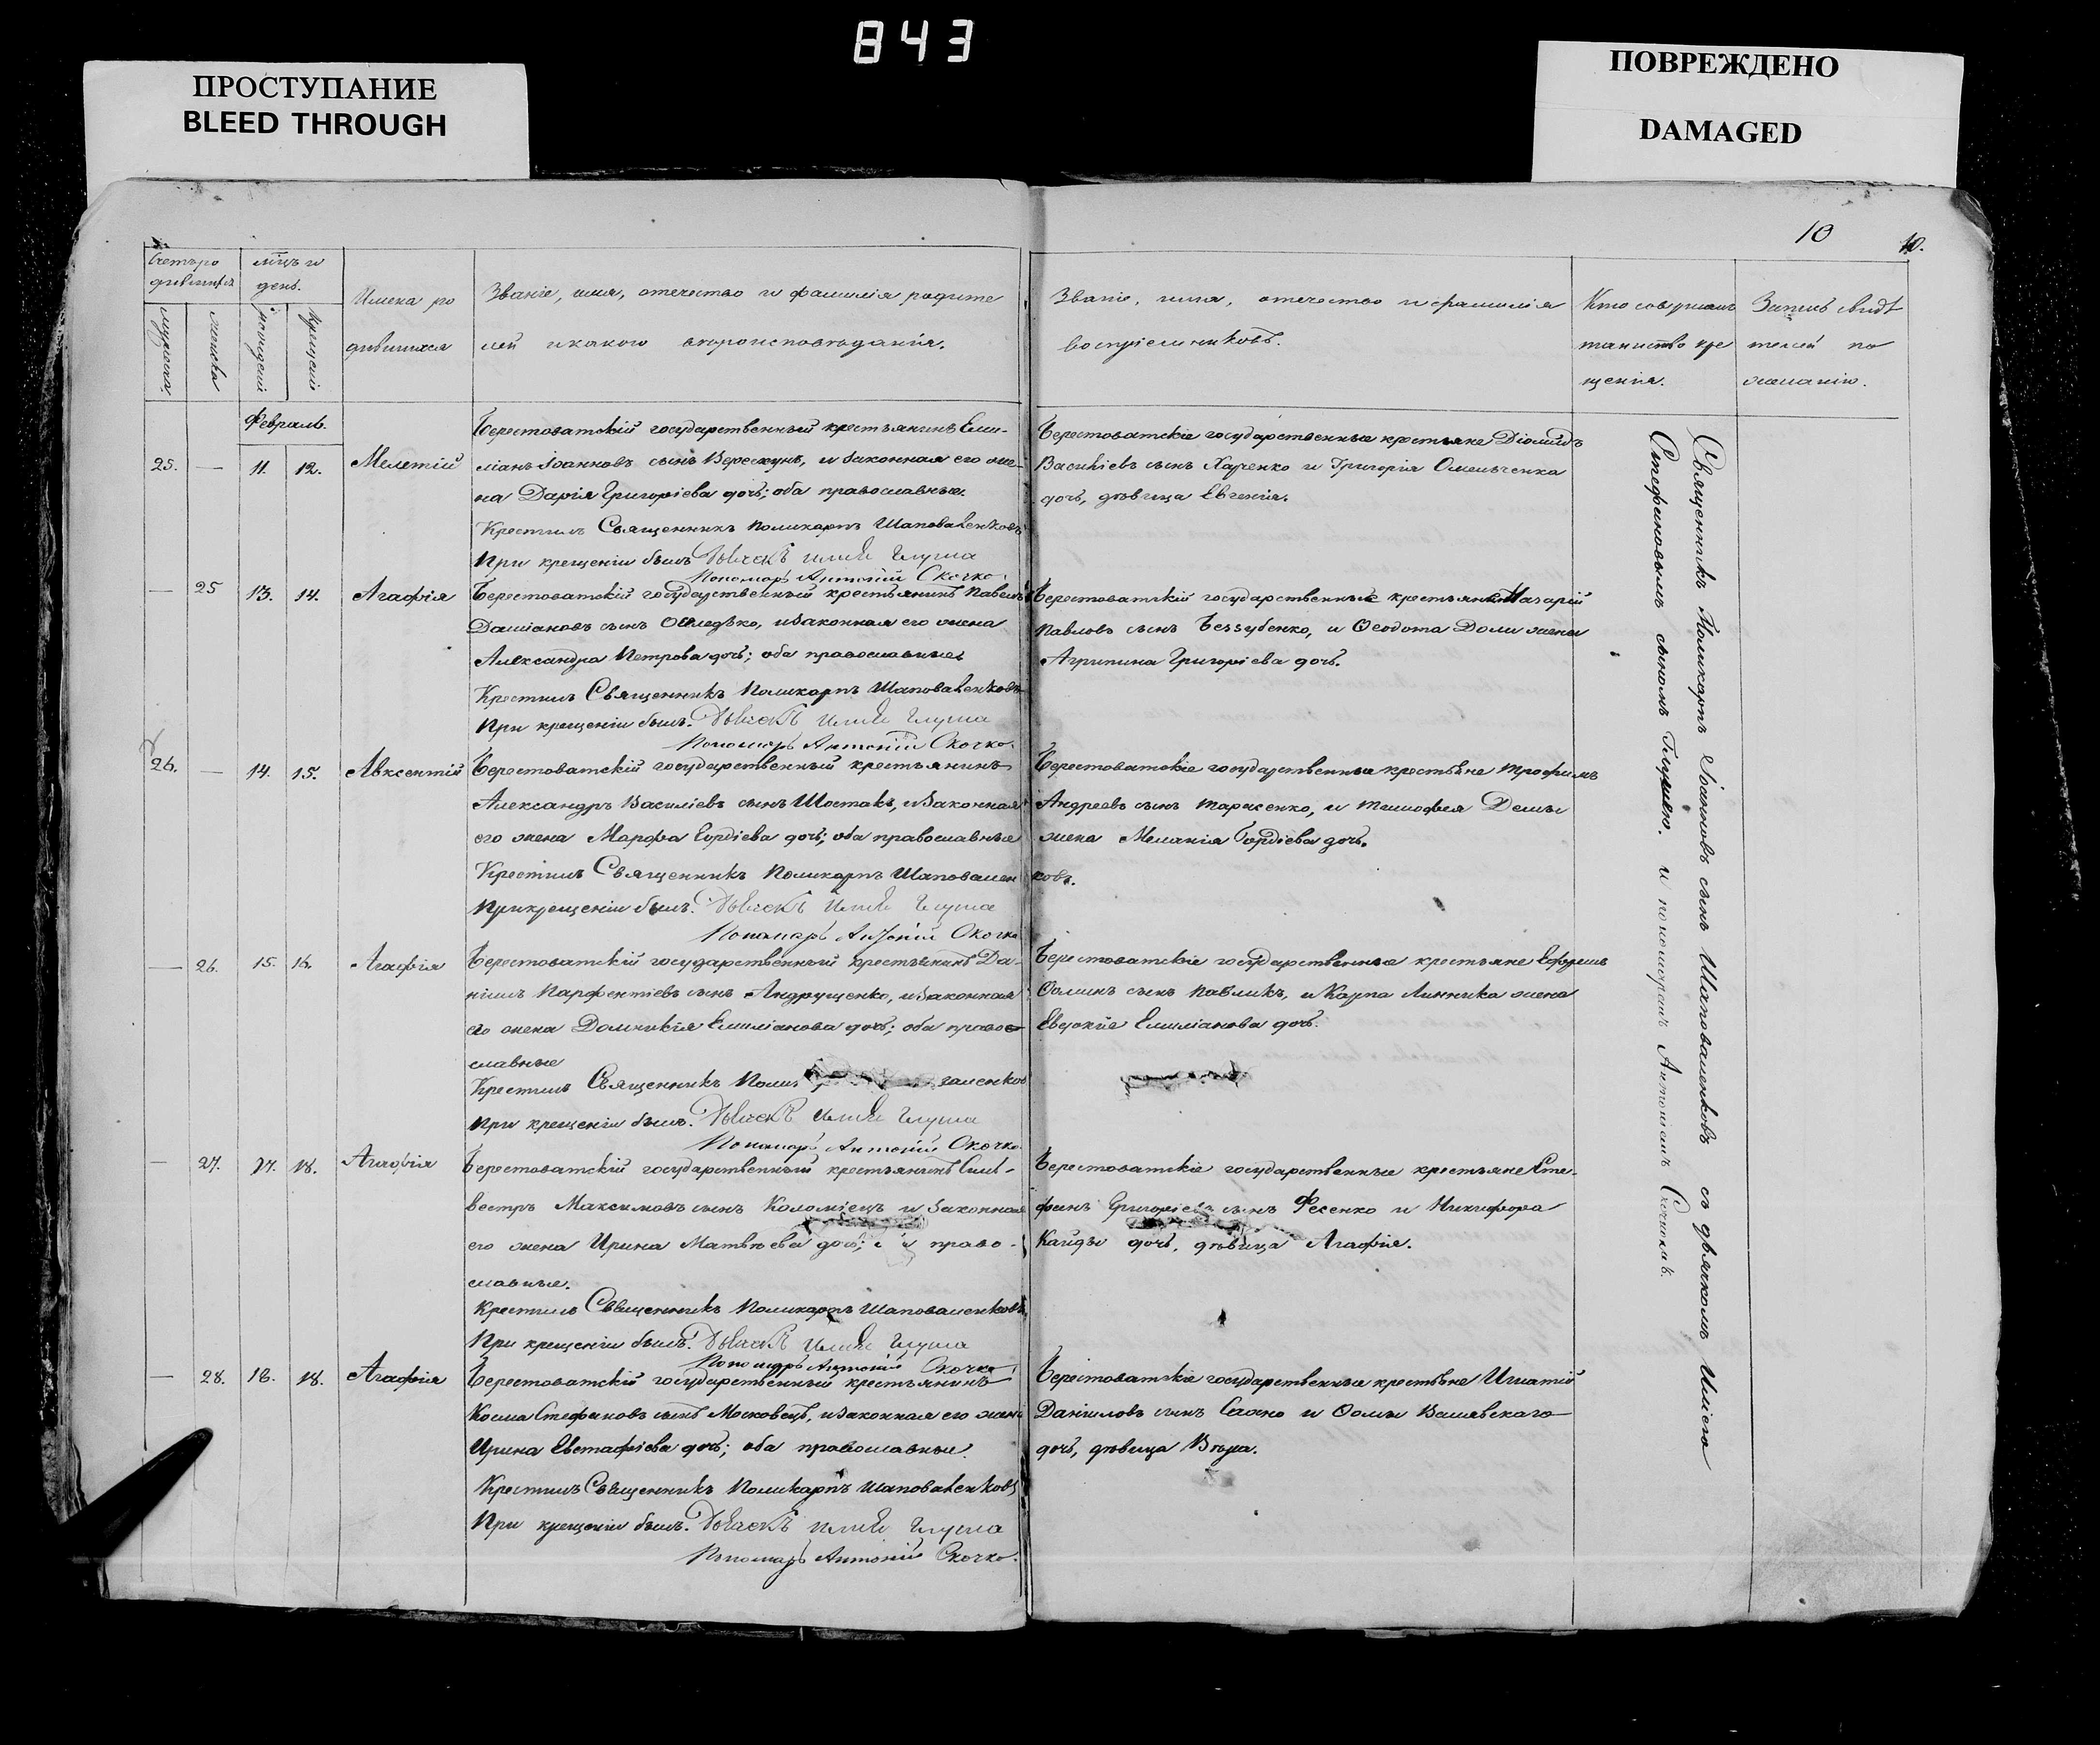 843
ПРОСТУПАНИЕ
BLEED THROUGH
ПОВРЕЖДЕНО
DAMAGED
10
10.
Счетъ ро
дившихся
мцъ и
день.
мужеска.
женска
рожденія
крещенія
Имена ро
дившихся
Званіе, имя, отечество и фамилія родите
лей и какого вѣроисповѣданія.
Званіе, имя, отечество и фамилія
воспріемниковъ.
Кто совершалъ
таинство кре
щенія.
Запись свидѣ
телей по
желанію.
Февраль.
25. — 11. 12. Мелетій
Берестоватскій государственный крестьянинъ Еми-
ліанъ Іоанновъ сынъ Верескунъ, и законная его же-
на Дарія Григоріева дочь; оба православные.
Крестилъ Священникъ Поликарпъ Шаповаленковъ
При крещеніи былъ Дьячекъ Илія Глуша
Пономарь Антоній Скочко.
Берестоватскіе государственные крестьяне Діомидъ
Василіевъ сынъ Харченко и Григорія Омельченка
дочь, дѣвица Евгенія.
— 25 13. 14. Агафія
Берестоватскій государственный крестьянинъ Павелъ
Даміановъ сынъ, и законная его жена
Александра Петрова дочь; оба православные
Крестилъ Священникъ Поликарпъ Шаповаленковъ
При крещеніи былъ. Дьячекъ Илія Глуша
Пономарь Антоній Скочко.
Берестоватскій государственные крестьяне Назарій
Павловъ сынъ Беззубенко, и Ѳеодота Доли жена
Агрипина Григоріева дочь.
26. — 14. 15. Авксентій
Берестоватскій государственный крестьянинъ
Александръ Василіевъ сынъ Шостакъ, и законная
его жена Марфа Гордіева дочь; оба православные
Крестилъ Священникъ Поликарпъ Шаповален
ковъ.
При крещеніи былъ. Дьячекъ Илія Глуша
Пономарь Антоній Скочко
Берестоватскіе государственные крестьяне Трофимъ
Андреевъ сынъ Тарасенко, и Тимофея Демы
жена Меланія Гордіева дочь.
— 26. 15. 16. Агафія
Берестоватскій государственный крестьянинъ Да-
ніилъ Парфентіевъ сынъ Андрущенко, и законная
его жена Домникія Емиліанова дочь; оба право-
славные
Крестилъ Священникъ
При крещеніи былъ. Дьячекъ Илія Глуша
Пономарь Антоній Скочко
Берестоватскіе государственные крестьяне Ефремъ
Ѳоминъ сынъ Павликъ, и Карпа Линника жена
Евдокія Емиліанова дочь.
— 27. 17. 18. Агафія
Берестоватскій государственный крестьянинъ Силь-
вестръ Максимовъ сынъ Коломіецъ и законная
его жена Ирина Матвѣева дочь; право-
славные.
Крестилъ Священникъ Поликарпъ Шаповаленковъ
При крещеніи былъ. Дьячекъ Илія Глуша
Пономарь Антоній Скочко.
Берестоватскіе государственные крестьяне Сте-
фанъ Григоріевъ сынъ Фесенко и Никифора
Кайды дочь, дѣвица Агафія.
— 28. 16. 18. Агафія
Берестоватскій государственный крестьянинъ
Косма Стефановъ сынъ Московецъ, и законная его жена
Ирина Евстафіева дочь; оба православные.
Крестилъ Священникъ Поликарпъ Шаповаленковъ
При крещеніи былъ. Дьячекъ Илія Глуша
Пономарь Антоній Скочко.
Берестоватскіе государственные крестьяне Игнатій
Даніиловъ сынъ и Ѳомы
дочь, дѣвица Вѣра.
Священникъ Поликарпъ Іоанновъ сынъ Шаповаленковъ съ дьячкомъ Иліею
Стефановымъ сыномъ Глушею. и пономаремъ Антоніемъ Скочкомъ.